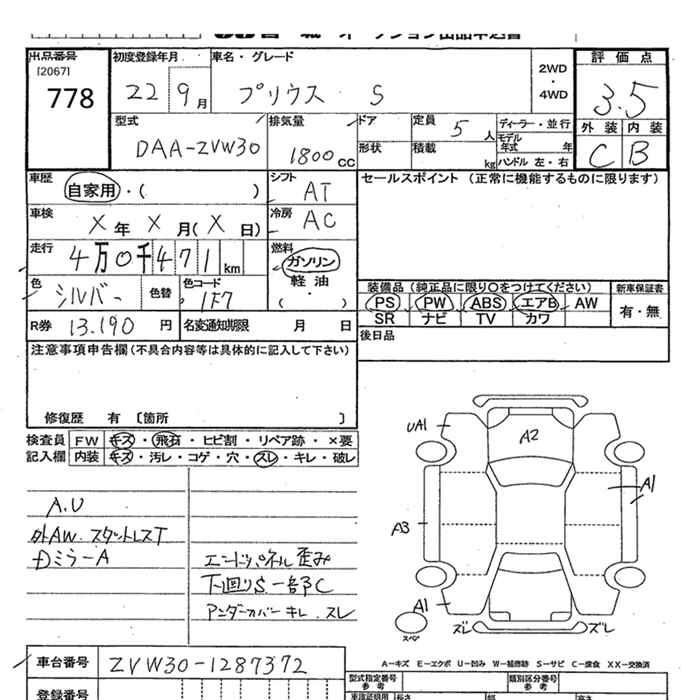 出品番号 初度登録年月 車名・グレード 2WD ・ 4WD 評価点
[2067]
778 22 9月 プリウス S 3.5
型式 排気量 ドア 定員 5人 ディーラー・並行 外装 内装
DAA-ZVW30 1800cc 形状 積載 kg モデル年式 年 C B
ハンドル 左・右
車歴 自家用・( ) シフト AT セールスポイント (正常に機能するものに限ります)
車検 X年 X月(X日) 冷房 AC
走行 4万0千471km 燃料 ガソリン
軽油
・( )
色 シルバー 色替 色コード 1F7
装備品 (純正品に限り○をつけてください) 新車保証書
PS PW ABS エアB AW 有・無
SR ナビ TV カワ
R券 13.190円 名変通知期限 月 日
後日品
注意事項申告欄(不具合内容等は具体的に記入して下さい)
修復歴 有 〔箇所 〕
検査員記入欄 FW キズ・飛石・ヒビ割・リペア跡・×要
内装 キズ・汚レ・コゲ・穴・スレ・キレ・破レ
A.U
外AW.スタットレスT
Dミラー A
エンドパネル歪み
下廻りS 一部C
アンダーカバーキレ.スレ
UA1
A2
A1
A3
A1
スペア
ズレ ズレ
A-キズ E-エクボ U-凹み W-補修跡 S-サビ C-腐食 XX-交換済
車台番号 ZVW30-1287372
型式指定番号 参考 類別区分番号 参考
登録番号 長さ 幅 高さ